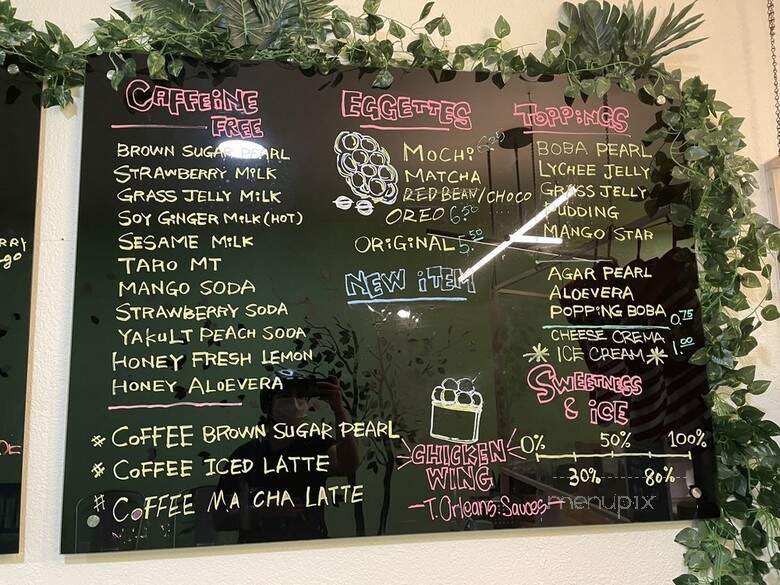 CAFFEINE
FREE
BROWN SUGAR PEARL
STRAWBERRY MILK
GRASS JELLY MILK
SOY GINGER MILK (HOT)
SESAME MILK
TARO MT
MANGO SODA
STRAWBERRY SODA
YAKULT PEACH SODA
HONEY FRESH LEMON
HONEY ALOEVERA
* COFFEE BROWN SUGAR PEARL
* COFFEE ICED LATTE
* COFFEE MA CHA LATTE
EGGETTES
MOCHI 6.50
MATCHA
REDBEAN/CHOCO
OREO 6.50
ORIGINAL 5.50
NEW ITEM
CHICKEN
WING
-T.Orleans Sauces-
TOPPINGS
BOBA PEARL
LYCHEE JELLY
GRASS JELLY
PUDDING
MANGO STAR
AGAR PEARL
ALOEVERA
POPPING BOBA 0.75
CHEESE CREMA
*ICE CREAM* 1.00
SWEETNESS
& ICE
0% 50% 100%
30% 80%
menupix